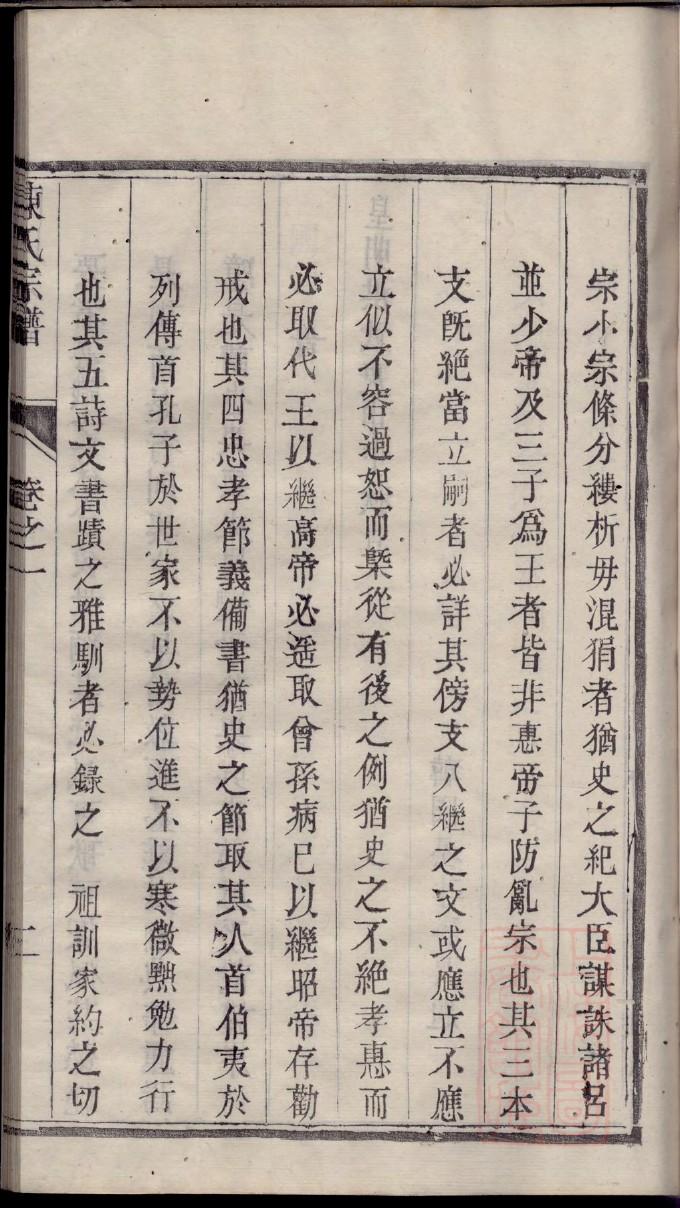 宗小宗條分縷析毋混狷者猶史之紀大臣謀誅諸呂
並少帝及三子為王者皆非惠帝子防亂宗也其三本
支旣絕當立嗣者必詳其傍支入繼之文或應立不應
立似不容過恕而槩從有後之例猶史之不絕孝惠而
必取代王以繼高帝必遥取曾孫病已以繼昭帝存勸
戒也其四忠孝節義備書猶史之節取其人首伯夷於
列傳首孔子於世家不以勢位進不以寒微黜勉力行
也其五詩文書蹟之雅馴者必録之 祖訓家約之切
陳氏宗譜 卷之一 三